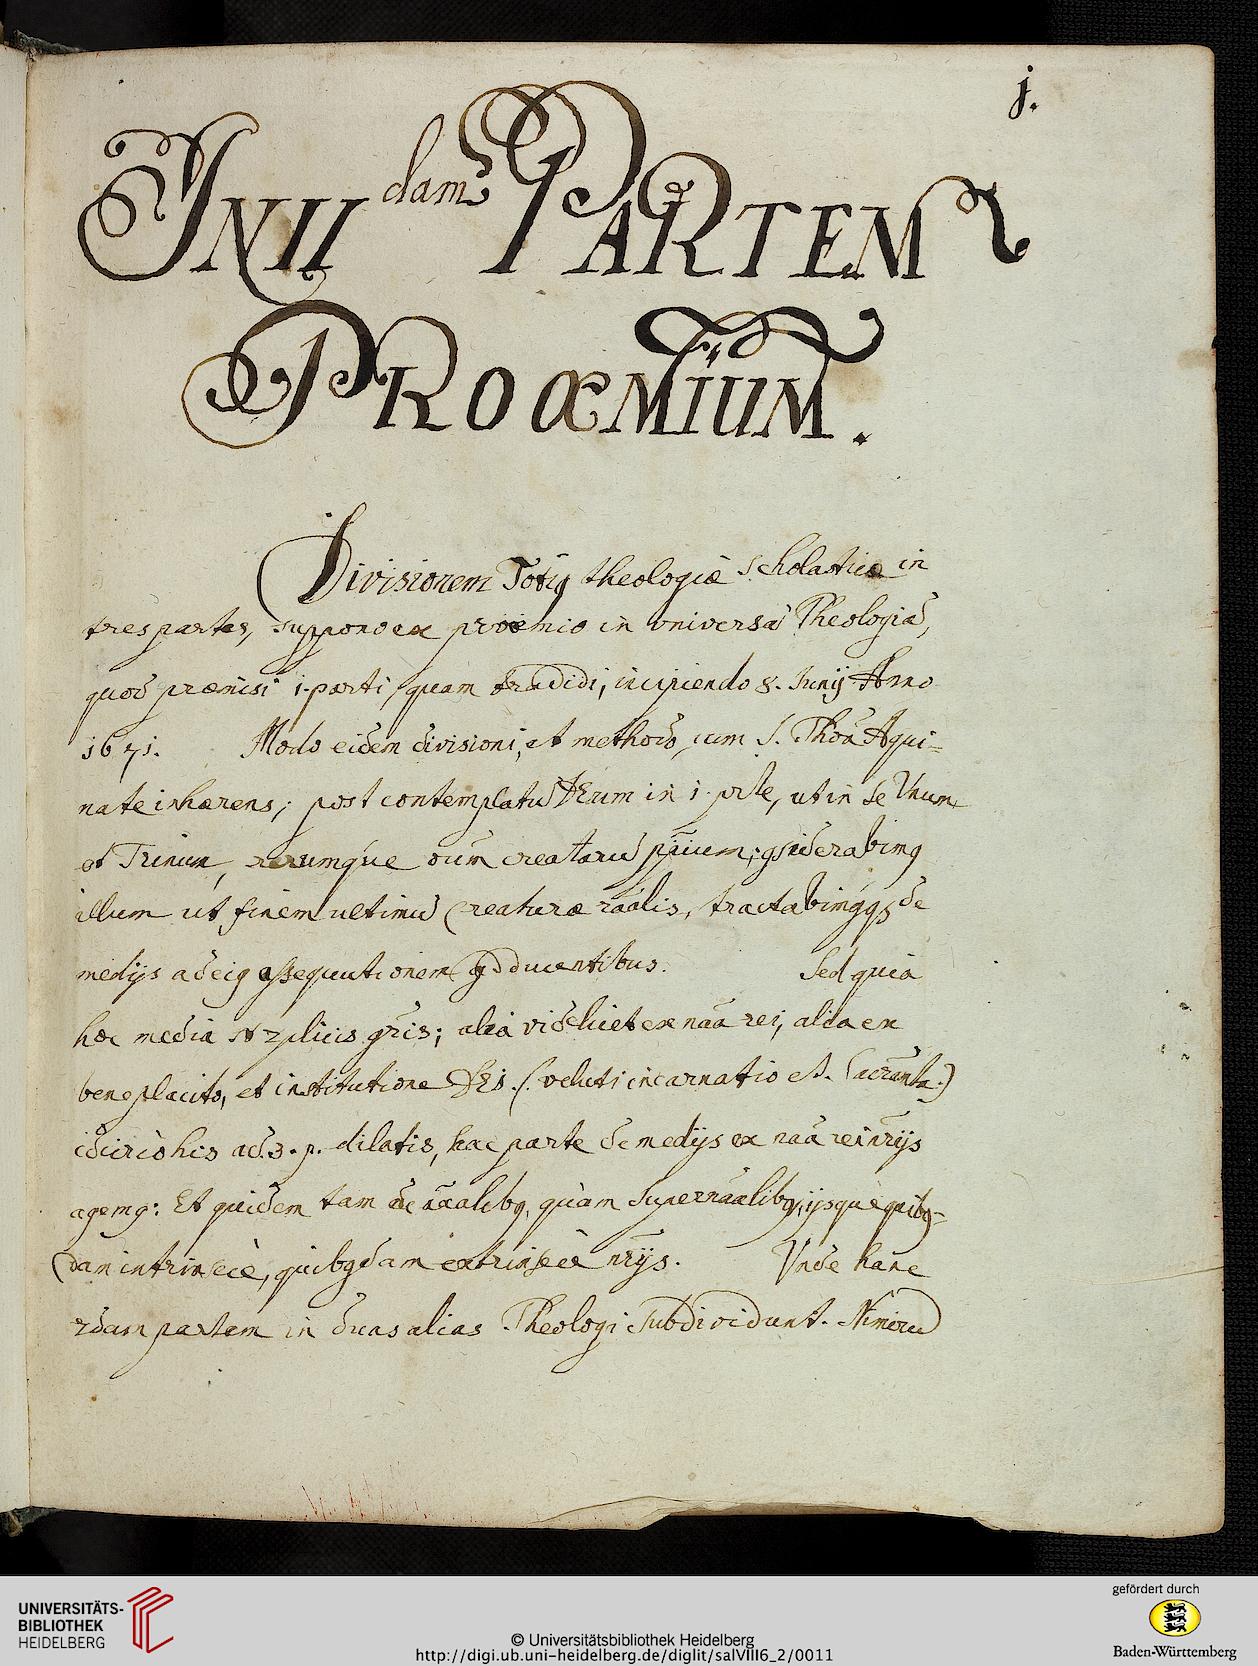 j.
IN II dam PARTEM
PROŒMIUM.
Divisionem Totiq theologiæ scholasticæ in
tres partes, suppono ex proœmio in vniversã Theologiã,
quod præmisi 1. parti, quam tradidi, incipiendo 8. Junij Anno
1671. Modo eidem divisioni, et methodo, cum S. Thoã Aqui=
nate inhærens; post contemplatũ DEum in 1. prte, ut in se Vnum
et Trinum, rerumque oum creatarũ ppium; gsiderabimg
illum ut finem ultimũ Creaturæ raãlis, tractabimgqs de
medijs ad eig assequutionem gducentibus. Sed quia
hæc media st 2plicis gris; alia videlicet ex naã rei, alia ex
beneplacito, et institutione DEI. (veluti incarnatio et Sacramta.)
idcircò his ad 3. p. dilatis, hac parte de medijs ex naã rei nrijs
agemg: Et quidem tam de naãlibg, quàm supernaãlibg, ijsque quibg=
dam intrinsecè, quibgdam extrinsecè nrijs. Vnde hanc
2dam partem in duas alias Theologi subdividunt. Nimirũ
UNIVERSITÄTS-
BIBLIOTHEK
HEIDELBERG
© Universitätsbibliothek Heidelberg
http://digi.ub.uni-heidelberg.de/diglit/salVIII6_2/0011
gefördert durch
Baden-Württemberg